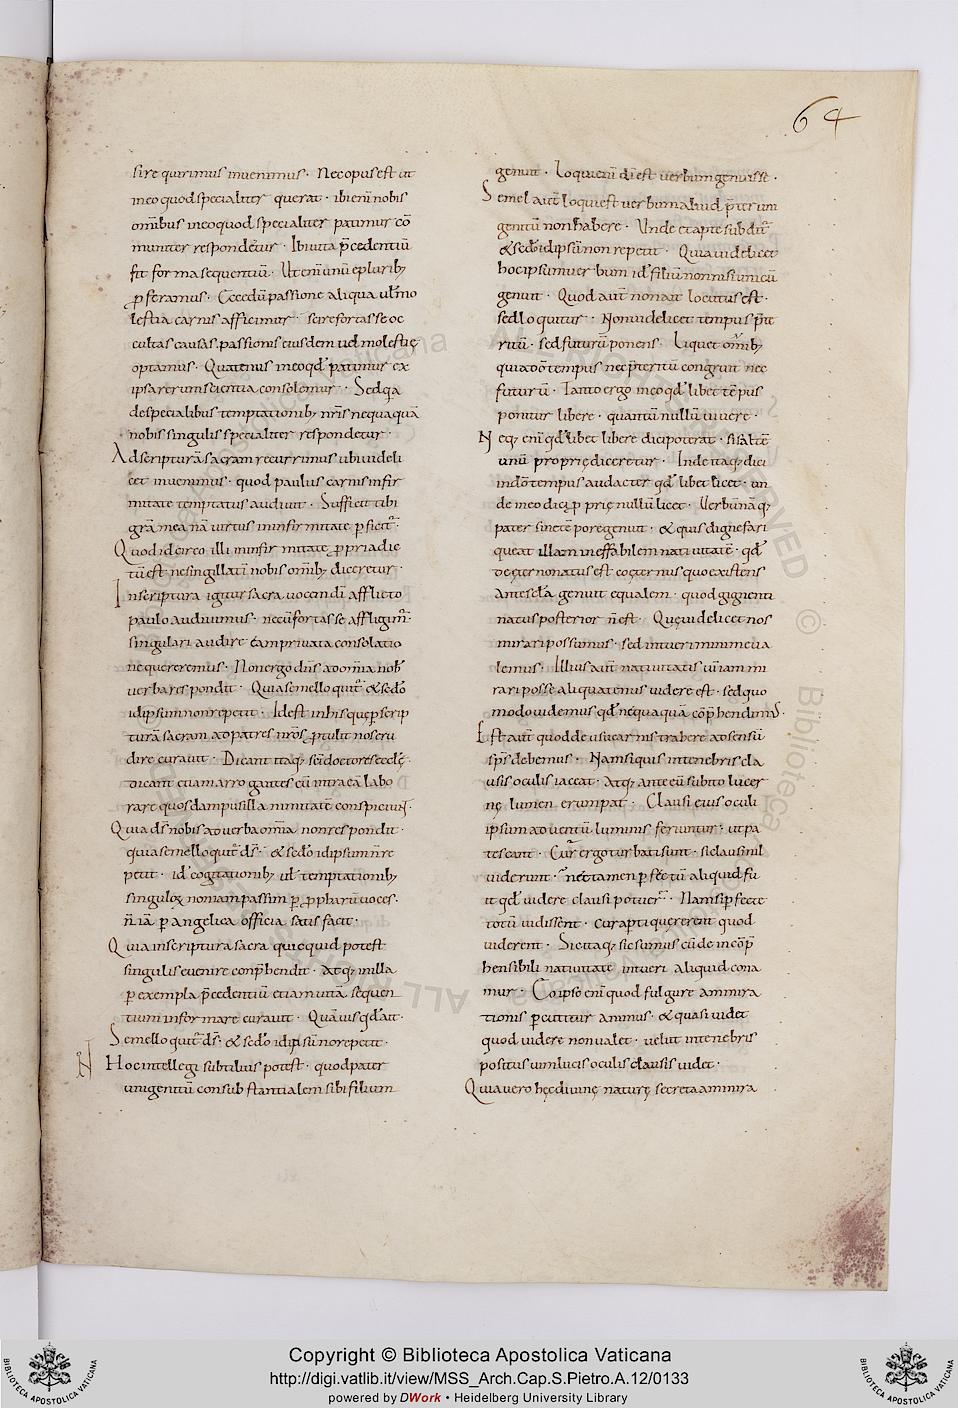 64
sire querimus invenimus · Nec opus est ut
in eo quod specialiter querat · ibi enī nobis
omībus in eo quod specialiter patimur cō
muniter respondetur · Ibi vita p̄cedentiū
fit forma sequentiū · Ut enī unū e pluribꝫ
ꝓferamus · Ecce dū passione aliqua vł mo
lestia carnis afficimur · scire fortasse oc
cultas causas passionis eiusdem vel molestię
optamus · Quatenus in eo qđ patimur ex
ipsa rerum scientia consolemur · Sed qa
de specialibus temptationibꝫ nr̄is nequaquā
nobis singulis specialiter respondetur ·
Ad scripturā sacram recurrimus ubi videli
cet invenimus · quod paulus carnis infir
mitate temptatus audivit · Sufficit tibi
gr̄a mea nā virtus in infirmitate ꝑficit̄ ·
Quod idcirco illi in infirmitate ꝓpria dic
tū est ne singillatī nobis omībꝫ diceretur ·
In scriptura igitur sacra vocem dī afflicto
paulo audivimus · ne cū fortasse affligim̄ ·
singulari audire eam privata consolatio
ne quereremus · Non ergo dn̄s ad om̄ia nob̄
verba respondit · Quia semel loquit̄ & sēdo
id ipsum non repetit · Id est in his quę ꝑ scrip
turā sacram ad patres nr̄os ꝓtulit nos eru
dire curavit · Dicant itaqꝫ sc̄i doctores ecclę
dicant etiam arrogantes cū intra eā labo
rare quosdam pusillanimitatē conspiciunt ·
Quia dš nobis ad verba om̄ia non respondit ·
quia semel loquit̄ dš · & sēdo id ipsum n̄ re
petit · id ē cogitationibꝫ vł temptationibꝫ
singulorꝫ non iam passim ꝑ ꝓphetarū voces ·
n̄ iā ꝑ angelica officia satisfacit ·
Quia in scriptura sacra quicquid potest
singulis evenire conp̄hendit · Atqꝫ in illa
ꝑ exempla p̄cedentiū etiam vitā sequen
tium informare curavit · Quāvis qđ ait ·
Semel loquit̄ dš · & sēdo id ipsū n̄ repetit ·
Hoc intellegi subtilius potest · quod pater
unigenitū consubstantialem sibi filium
genuit · Loqui enī dī est verbum genuisse ·
Semel aut̄ loqui est verbum aliud p̄ter uni
genitū non habere · Unde et apte subdit̄
& sēdo id ipsū non repetit · Quia videlicet
hoc ipsum verbum id ē filiū non nisi unicū
genuit · Quod aut̄ non ait locutus est ·
sed loquitur · Non videlicet tempus p̄te
ritū · sed futurū ponens · Liquet om̄ibꝫ
quia dō tempus nec p̄teritū congruit nec
futurū · Tanto ergo in eo qđ libet tēpus
ponitur libere · quantū nullū vivere ·
Neqꝫ enī qđlibet libere dici poterat · si saltē
unū proprię diceretur · Inde itaqꝫ dici
in dō tempus audacter qđlibet licet · un
de in eo dici ꝓprię nullū licet · Verbū nāqꝫ
pater sine tēpore genuit · & quis digne fari
queat illam ineffabilem nativitatē · qđ
de ęterno natus est coęternus quod existens
ante scła genuit equalem · quod gignenti
natus posterior n̄ est · Quę videlicet nos
mirari possumus · sed intueri minime va
lemus · Illius aut̄ nativitatis vim iam mi
rari posse aliquatenus videre est · sed quo
modo videmus qđ nequaquā cōp̄hendimus ·
Est aut̄ quod de usu carnis trahere ad sensū
sp̄s debemus · Nam si quis in tenebris cla
usis oculis iaceat · Atqꝫ ante eū subito lucer
nę lumen erumpat · Clausi eius oculi
ipsum adventū luminis feriuntur · ut pa
tescant · Cur̄ ergo turbati sunt · si clausi nil
viderunt · nec tamen ꝑfectū aliquid fu
it qđ videre clausi potuer̄ · Nam si ꝑfecte
totū vidissent · cur aperti quęrerent quod
viderent · Sic itaqꝫ sic sumus cū de incōp̄
hensibili nativitate intueri aliquid cona
mur · Eo ipso enī quod fulgure ammira
tionis ꝑcutitur animus · & quasi videt
quod videre non valet · velut in tenebris
positus vim lucis oculis clausis videt ·
Quia vero hęc divinę naturę secreta ammira
Copyright © Biblioteca Apostolica Vaticana
http://digi.vatlib.it/view/MSS_Arch.Cap.S.Pietro.A.12/0133
powered by DWork • Heidelberg University Library
BIBLIOTECA APOSTOLICA VATICANA
BIBLIOTECA APOSTOLICA VATICANA